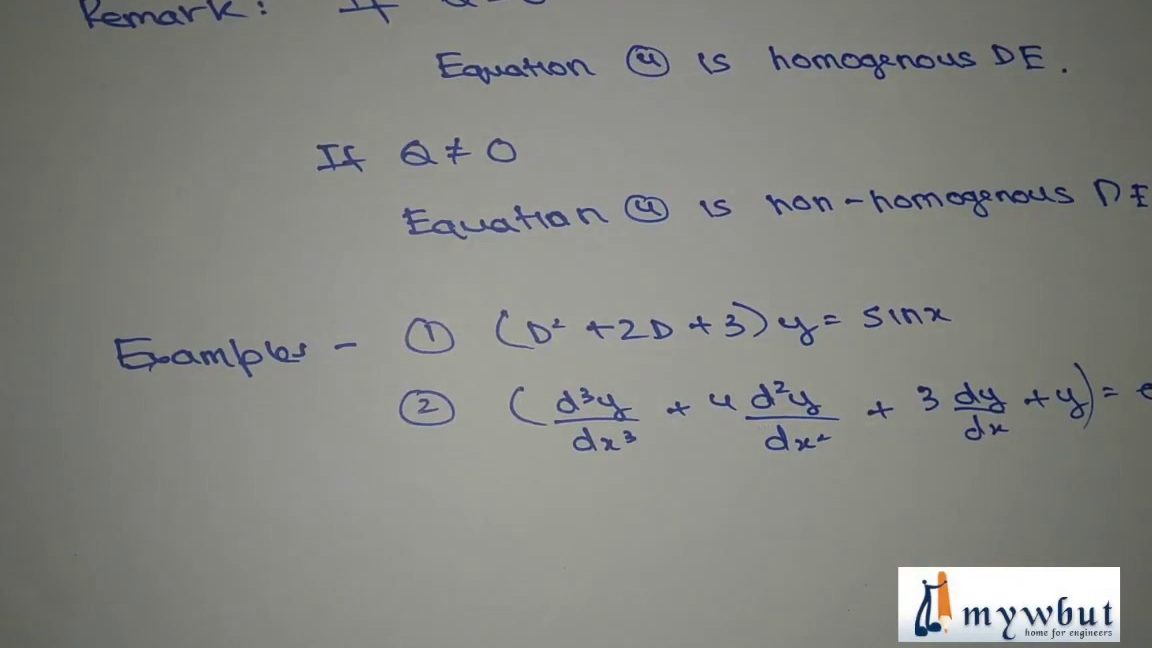 Remark: If
Equation ④ is homogenous DE.
If Q ≠ 0
Equation ④ is non-homogenous DE
Examples - ① (D² + 2D + 3) y = sinx
② (d³y/dx³ + 4 d²y/dx² + 3 dy/dx + y) =
mywbut
home for engineers